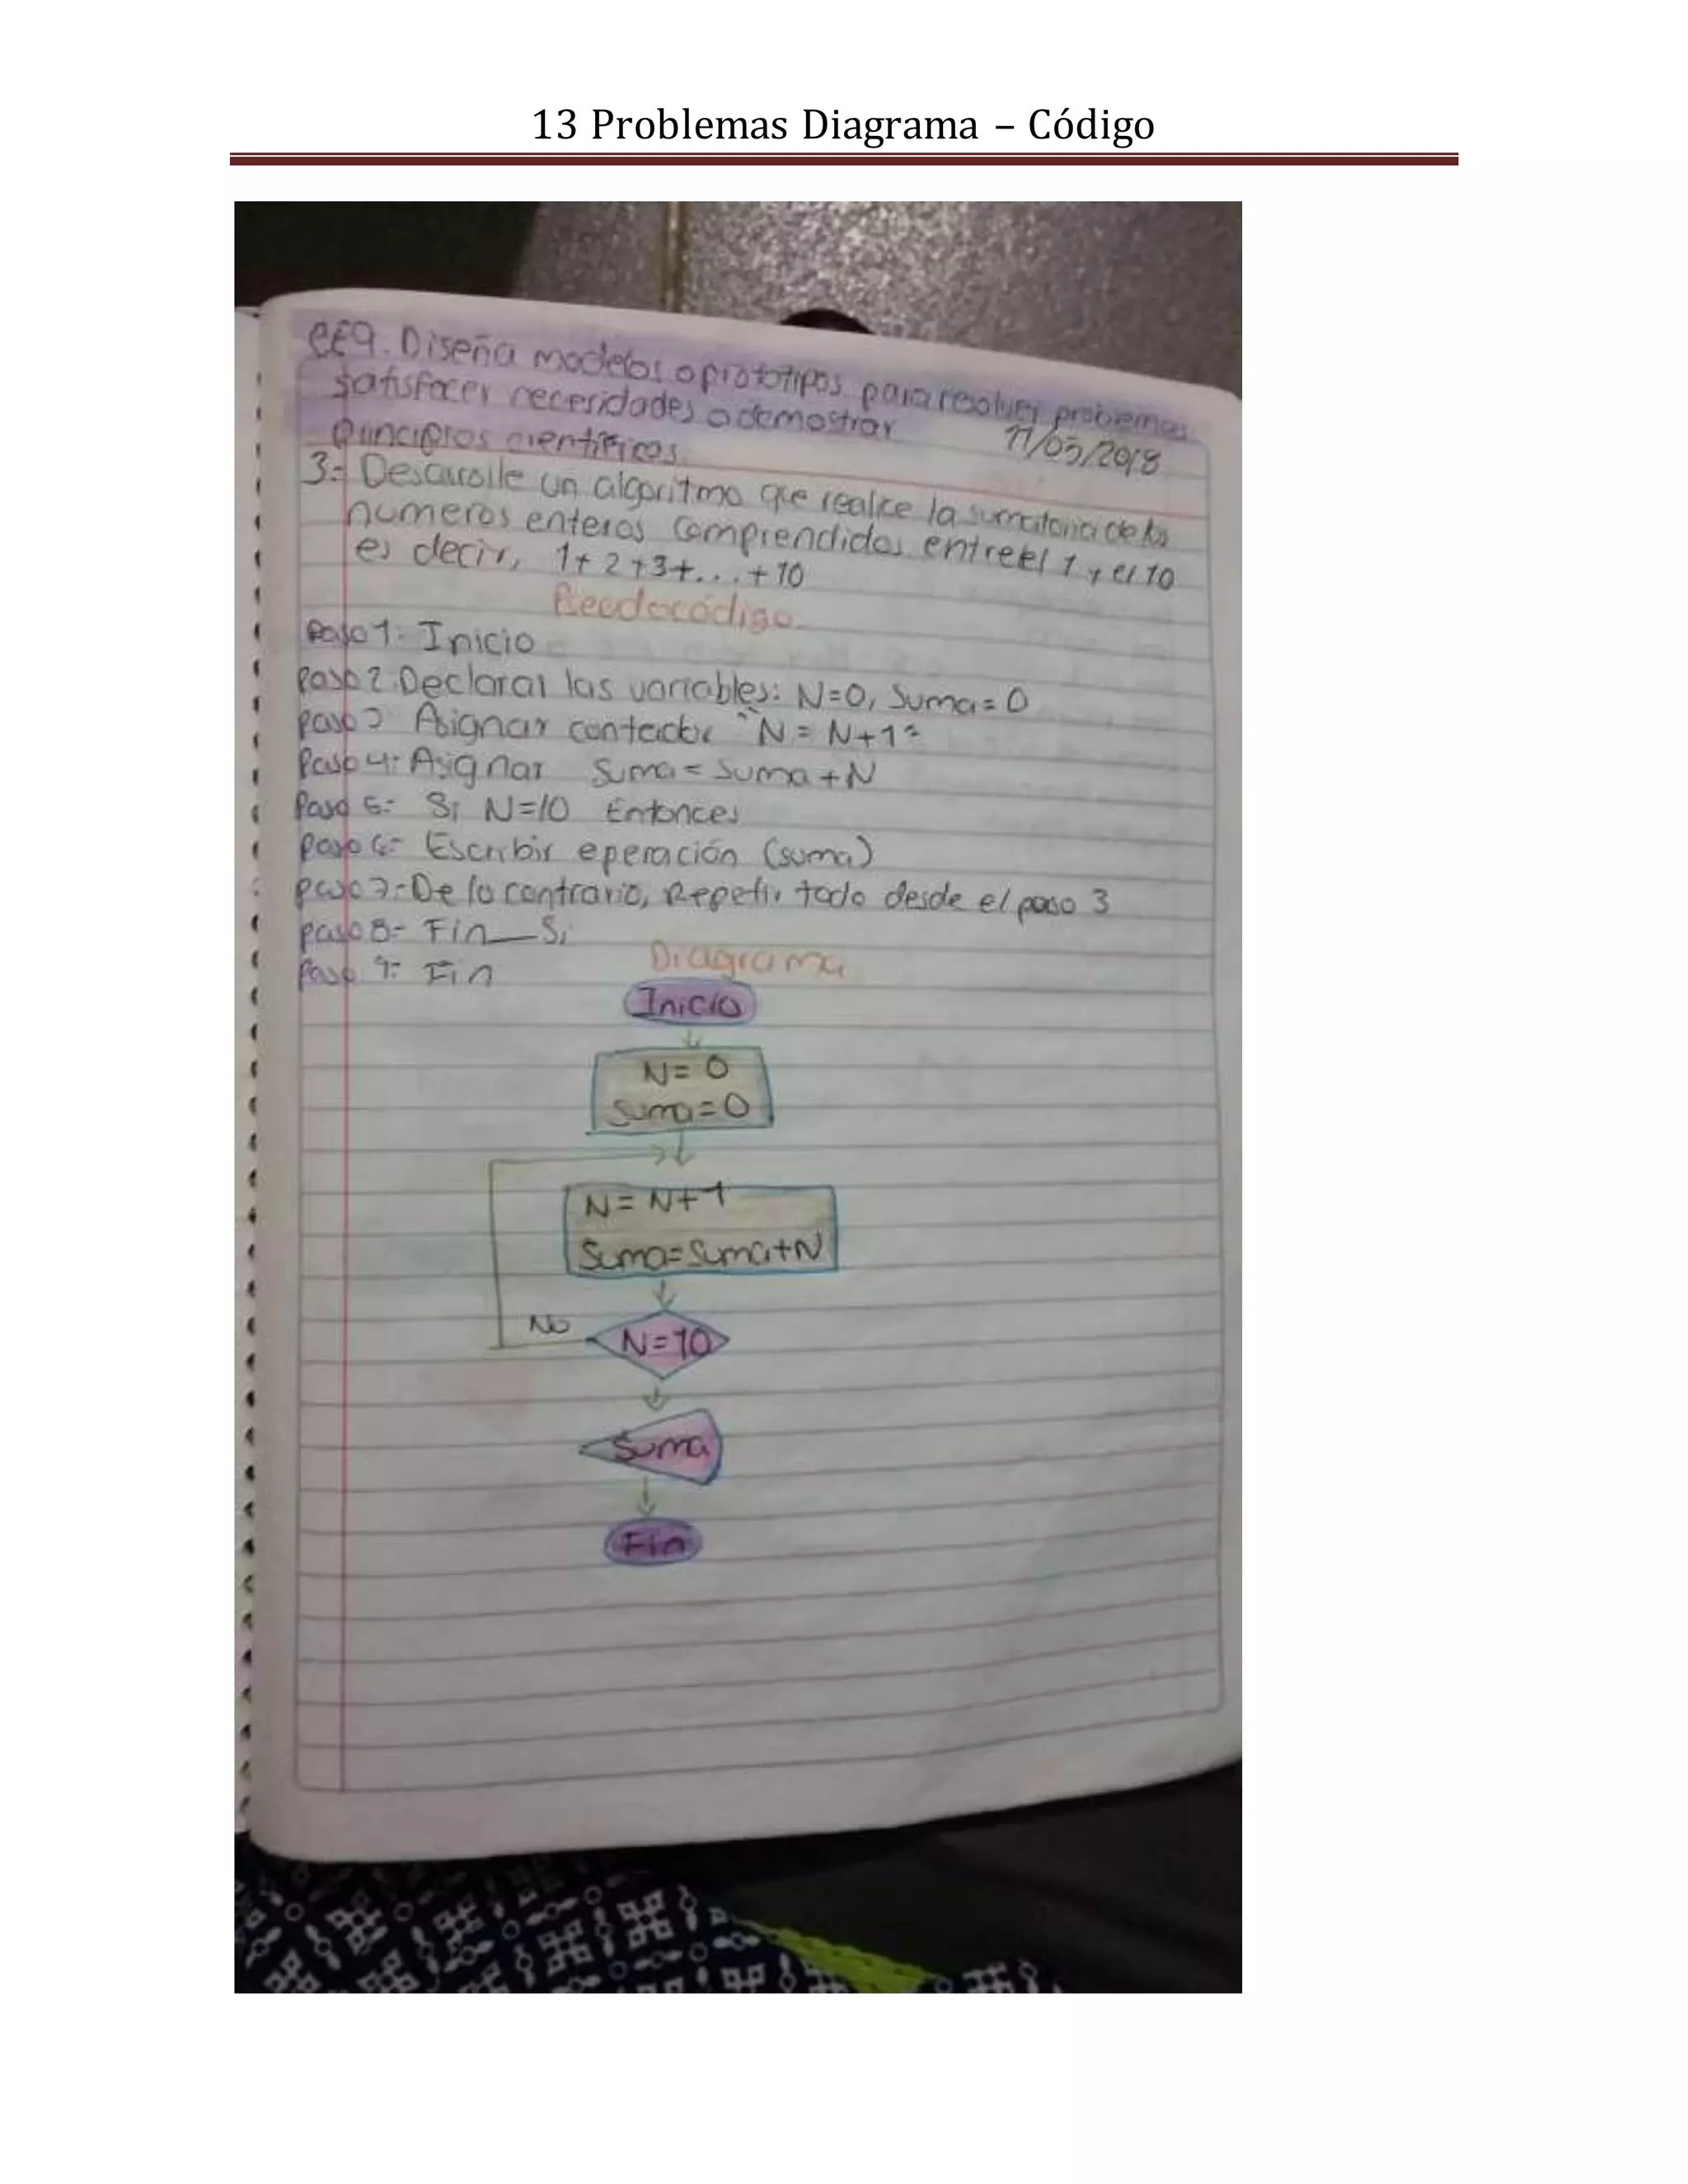 13 Problemas Diagrama – Código
CE9. Diseña modelos o prototipos para resolver problemas
satisfacer necesidades o demostrar
principios científicos.
11/05/2018
3.- Desarolle un algoritmo que realice la sumatoria de los
numeros enteros comprendidos entre el 1 y el 10
es decir, 1+2+3+...+10
Pseudocódigo
Paso 1- Inicio
Paso 2. Declarar las variables: N=0, Suma=0
Paso 3 Asignar contador "N = N+1"
Paso 4: Asignar Suma = Suma + N
Paso 5= Si N=10 Entonces
Paso 6= Escribir operación (suma)
paso 7-De lo contrario, Repetir todo desde el paso 3
paso 8- Fin_Si
Paso 9: Fin
Diagrama
Inicio
N= 0
Suma=0
N= N+1
Suma=Suma+N
No
N=10
Suma
Fin